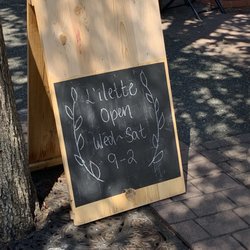 L'ilette
Open
Wed-Sat
9-2